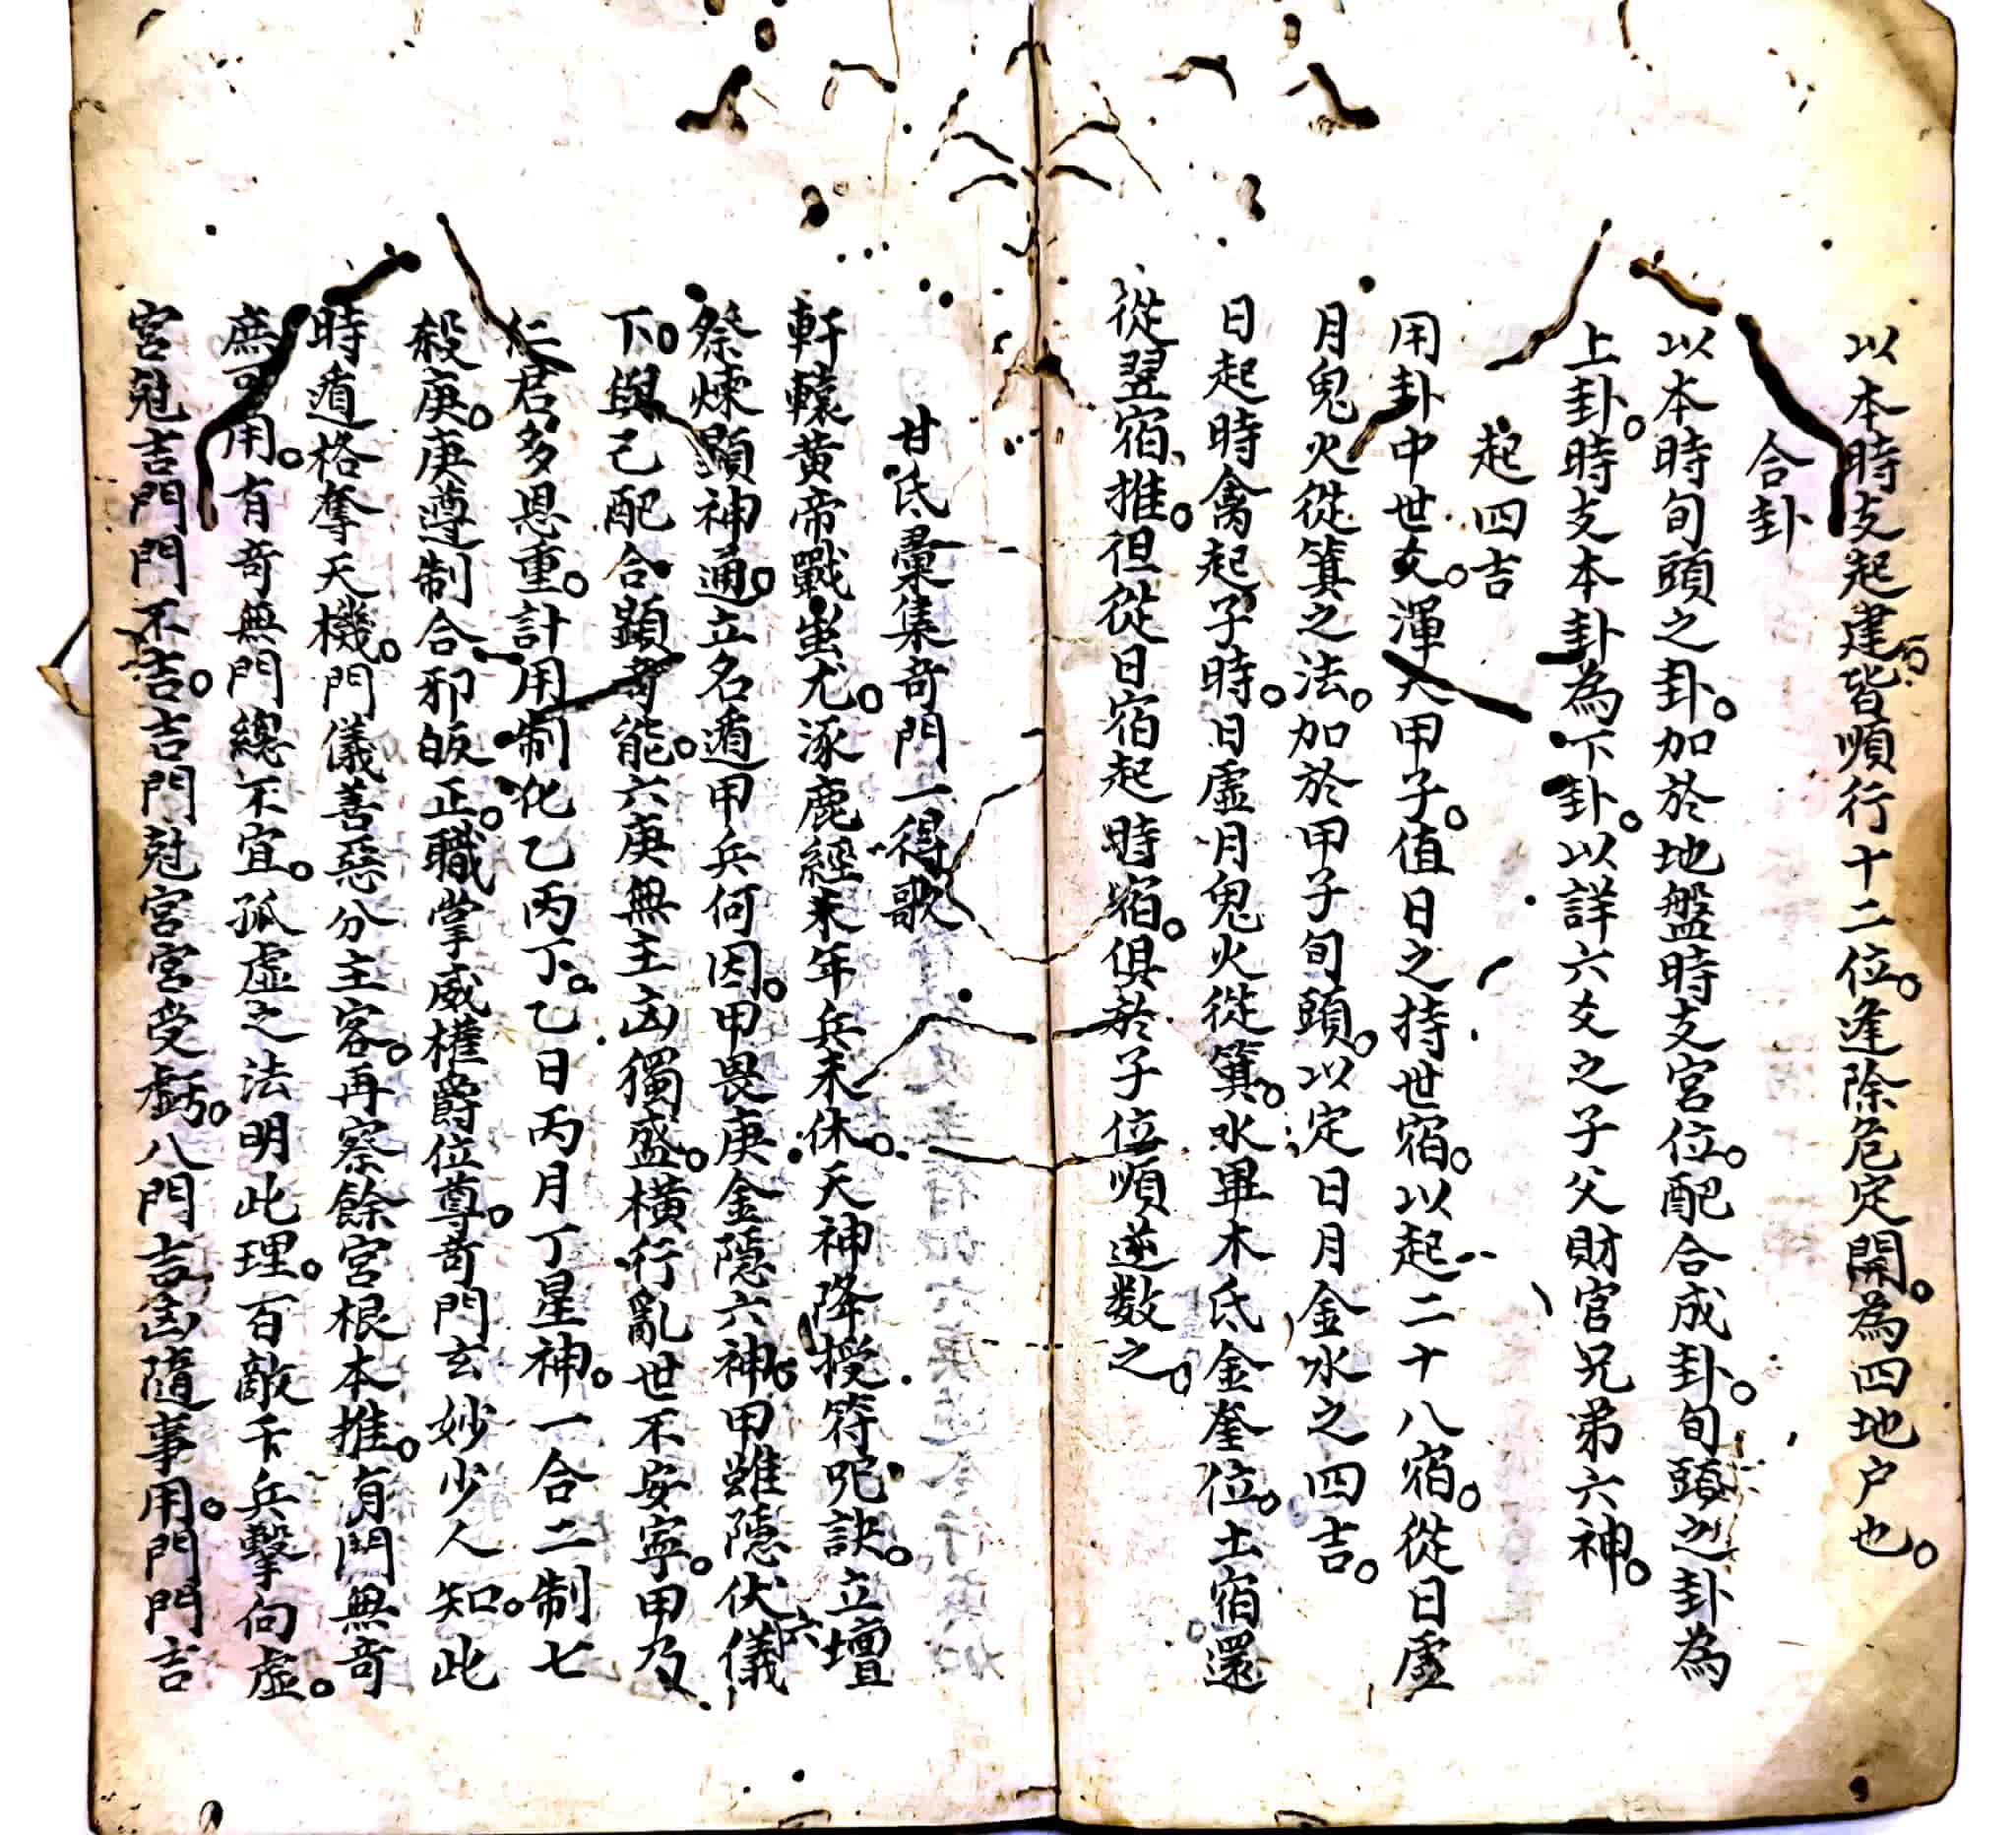 以本時支起建皆順行十二位。逢除危定開。為四地户也。
合卦
以本時旬頭之卦。加於地盤時支宮位。配合成卦。旬頭之卦為
上卦。時支本卦為下卦。以詳六爻之子父財官兄弟六神。
起四吉
用卦中世爻。渾天甲子。值日之持世宿。以起二十八宿。從日虛
月鬼火從箕之法。加於甲子旬頭。以定日月金水之四吉。
日起時禽起子時。日虛月鬼火從箕。水畢木氐金奎位。土宿還
從翌宿推。但從日宿起時宿。俱於子位順逆数之。
甘氏彙集奇門一得歌
軒轅黄帝戰蚩尤。涿鹿經末年兵未休。天神降授符呪訣。立壇
祭煉顯神通。立名遁甲兵何因。甲畏庚金隱六神。甲雖隱伏六儀
下。與己配合顯奇能。六庚無主凶獨盛。橫行亂世不安寧。甲乃
仁君多恩重。計用制化乙丙丁。乙日丙月丁星神。一合二制七
殺庚。庚遵制合邪皈正。職掌威權爵位尊。奇門玄妙少人知。此
時遁格奪天機。門儀善惡分主客。再察餘宮根本推。有門無奇
庶可用。有奇無門總不宜。孤虛之法明此理。百敵千兵擊向虛。
宮尅吉門門不吉。吉門尅宮宮受虧。八門吉凶隨事用。門門吉